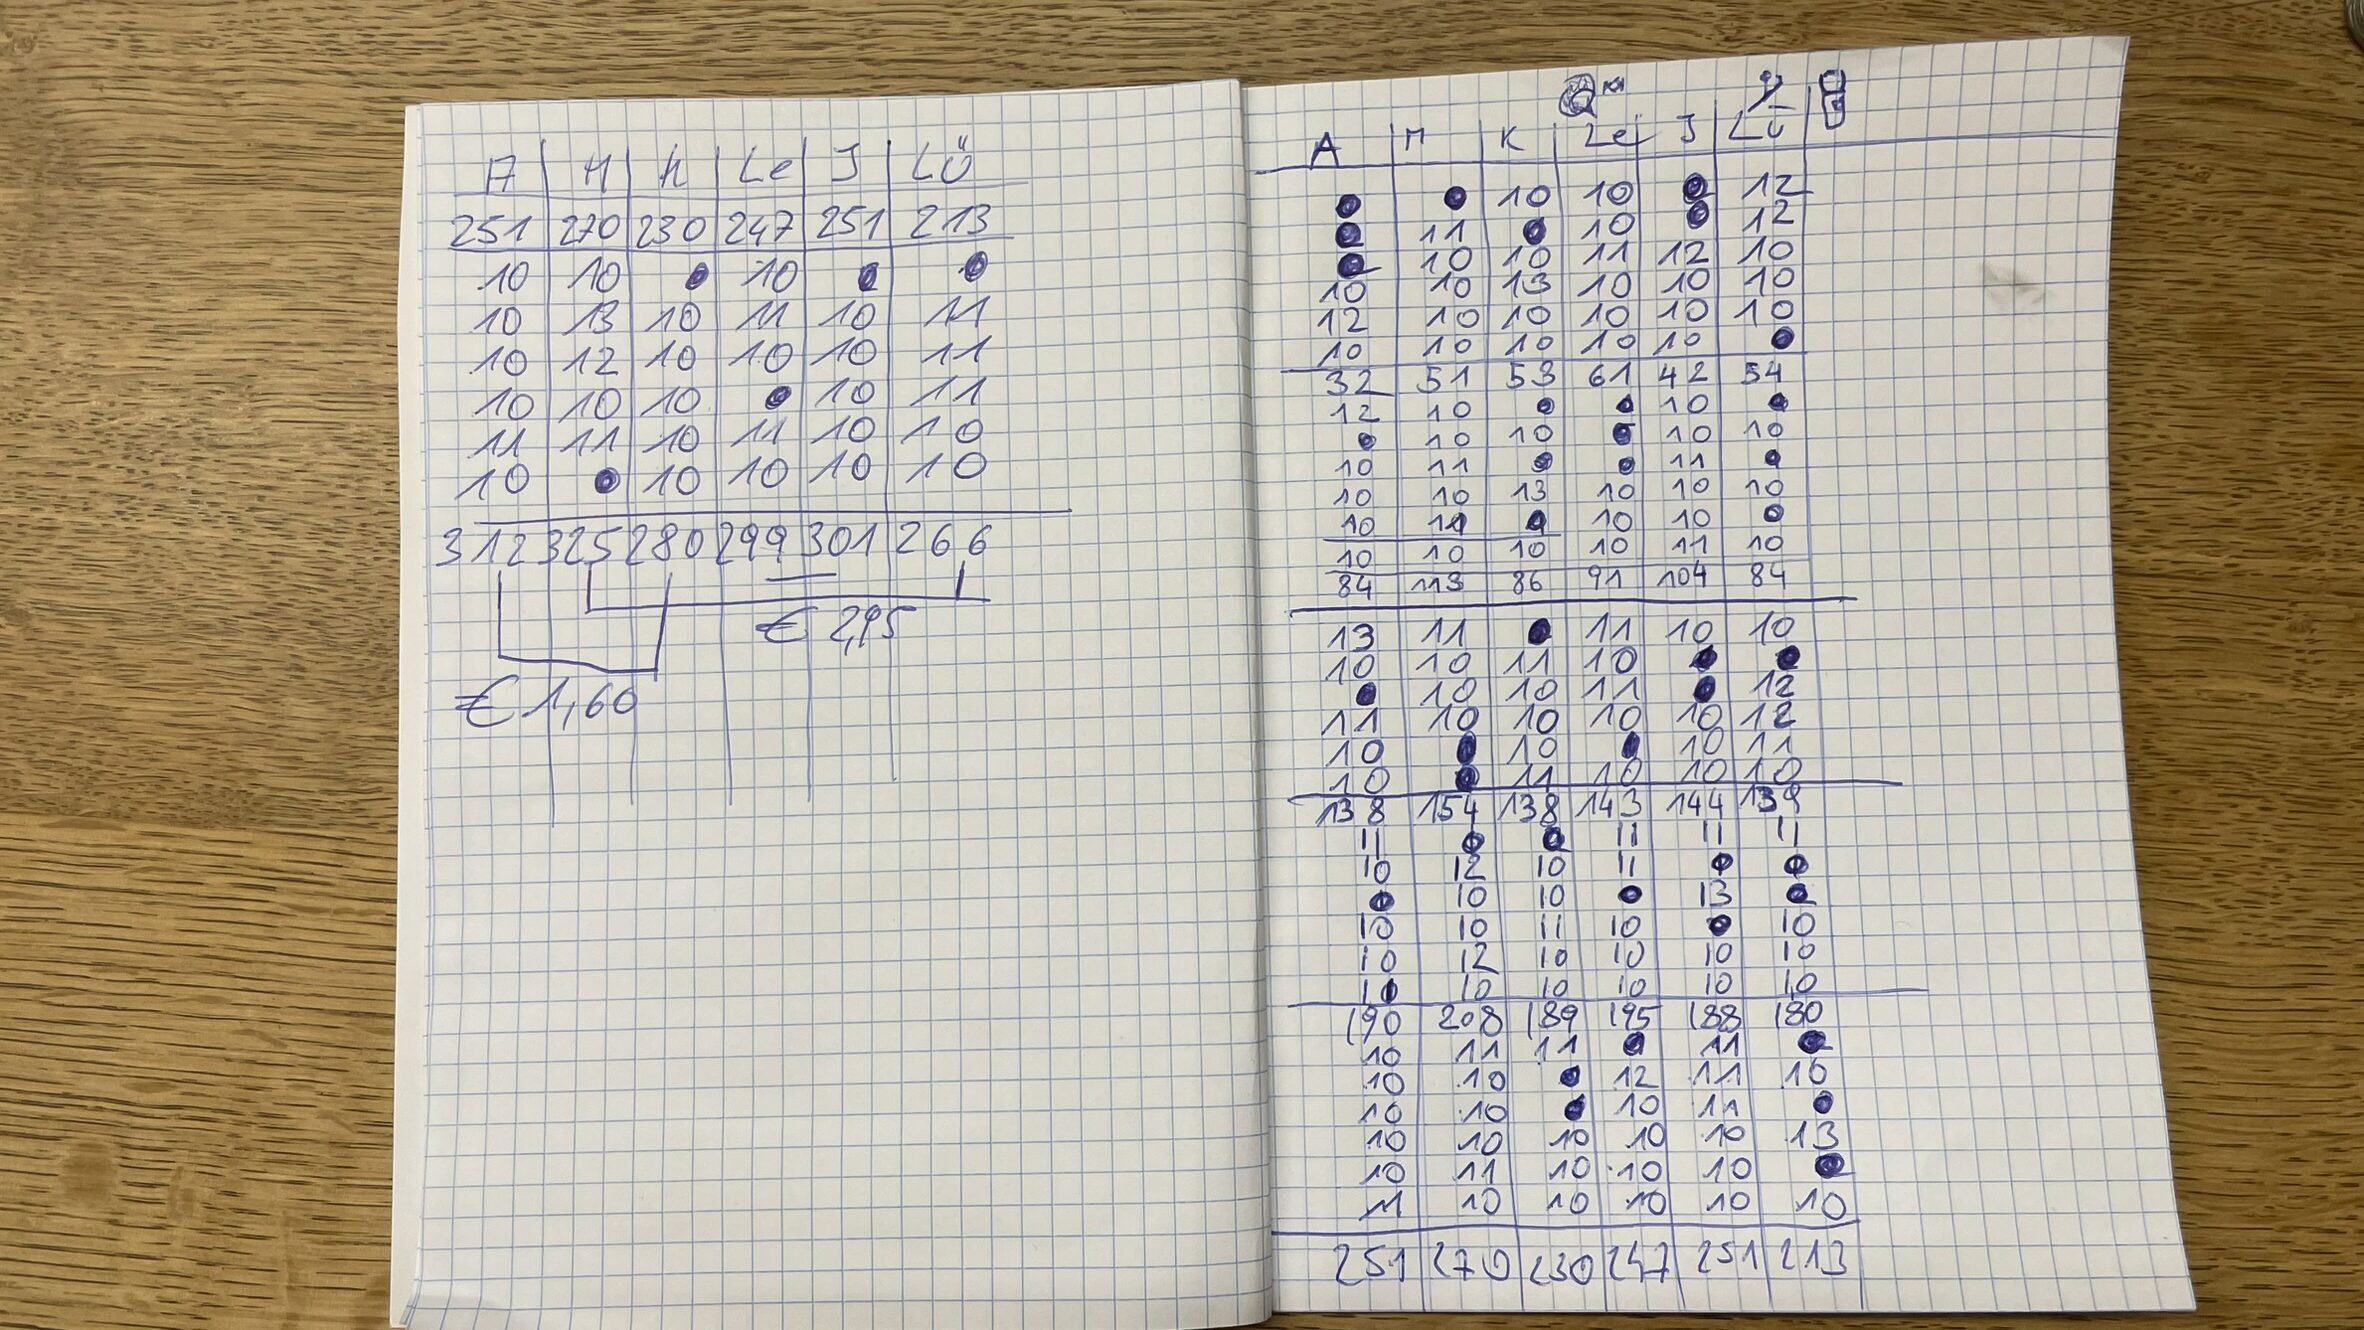 A | M | K | Le | J | Lü
251 | 270 | 230 | 247 | 251 | 213
10 | 10 | ● | 10 | ● | ●
10 | 13 | 10 | 11 | 10 | 11
10 | 12 | 10 | 10 | 10 | 11
10 | 10 | 10 | ● | 10 | 11
11 | 11 | 10 | 11 | 10 | 10
10 | ● | 10 | 10 | 10 | 10
312 | 325 | 280 | 299 | 301 | 266
€ 2,95
€ 1,60
A | M | K | Le | J | Lü
● | ● | 10 | 10 | ● | 12
● | 11 | ● | 10 | ● | 12
● | 10 | 10 | 11 | 12 | 10
10 | 10 | 13 | 10 | 10 | 10
12 | 10 | 10 | 10 | 10 | 10
10 | 10 | 10 | 10 | 10 | ●
32 | 51 | 53 | 61 | 42 | 54
12 | 10 | ● | ● | 10 | ●
● | 10 | 10 | ● | 10 | 10
10 | 11 | ● | ● | 11 | ●
10 | 10 | 13 | 10 | 10 | 10
10 | 11 | ● | 10 | 10 | ●
10 | 10 | 10 | 10 | 11 | 10
84 | 113 | 86 | 91 | 104 | 84
13 | 11 | ● | 11 | 10 | 10
10 | 10 | 11 | 10 | ● | ●
● | 10 | 10 | 11 | ● | 12
11 | 10 | 10 | 10 | 10 | 12
10 | ● | 10 | ● | 10 | 11
10 | ● | 11 | 10 | 10 | 10
138 | 154 | 138 | 143 | 144 | 139
11 | ● | ● | 11 | 11 | 11
10 | 12 | 10 | 11 | ● | ●
● | 10 | 10 | ● | 13 | ●
10 | 10 | 11 | 10 | ● | 10
10 | 12 | 10 | 10 | 10 | 10
11 | 10 | 10 | 10 | 10 | 10
190 | 208 | 189 | 195 | 188 | 180
10 | 11 | 11 | ● | 11 | ●
10 | 10 | ● | 12 | 11 | 10
10 | 10 | ● | 10 | 11 | ●
10 | 10 | 10 | 10 | 10 | 13
10 | 11 | 10 | 10 | 10 | ●
11 | 10 | 10 | 10 | 10 | 10
251 | 270 | 230 | 247 | 251 | 213